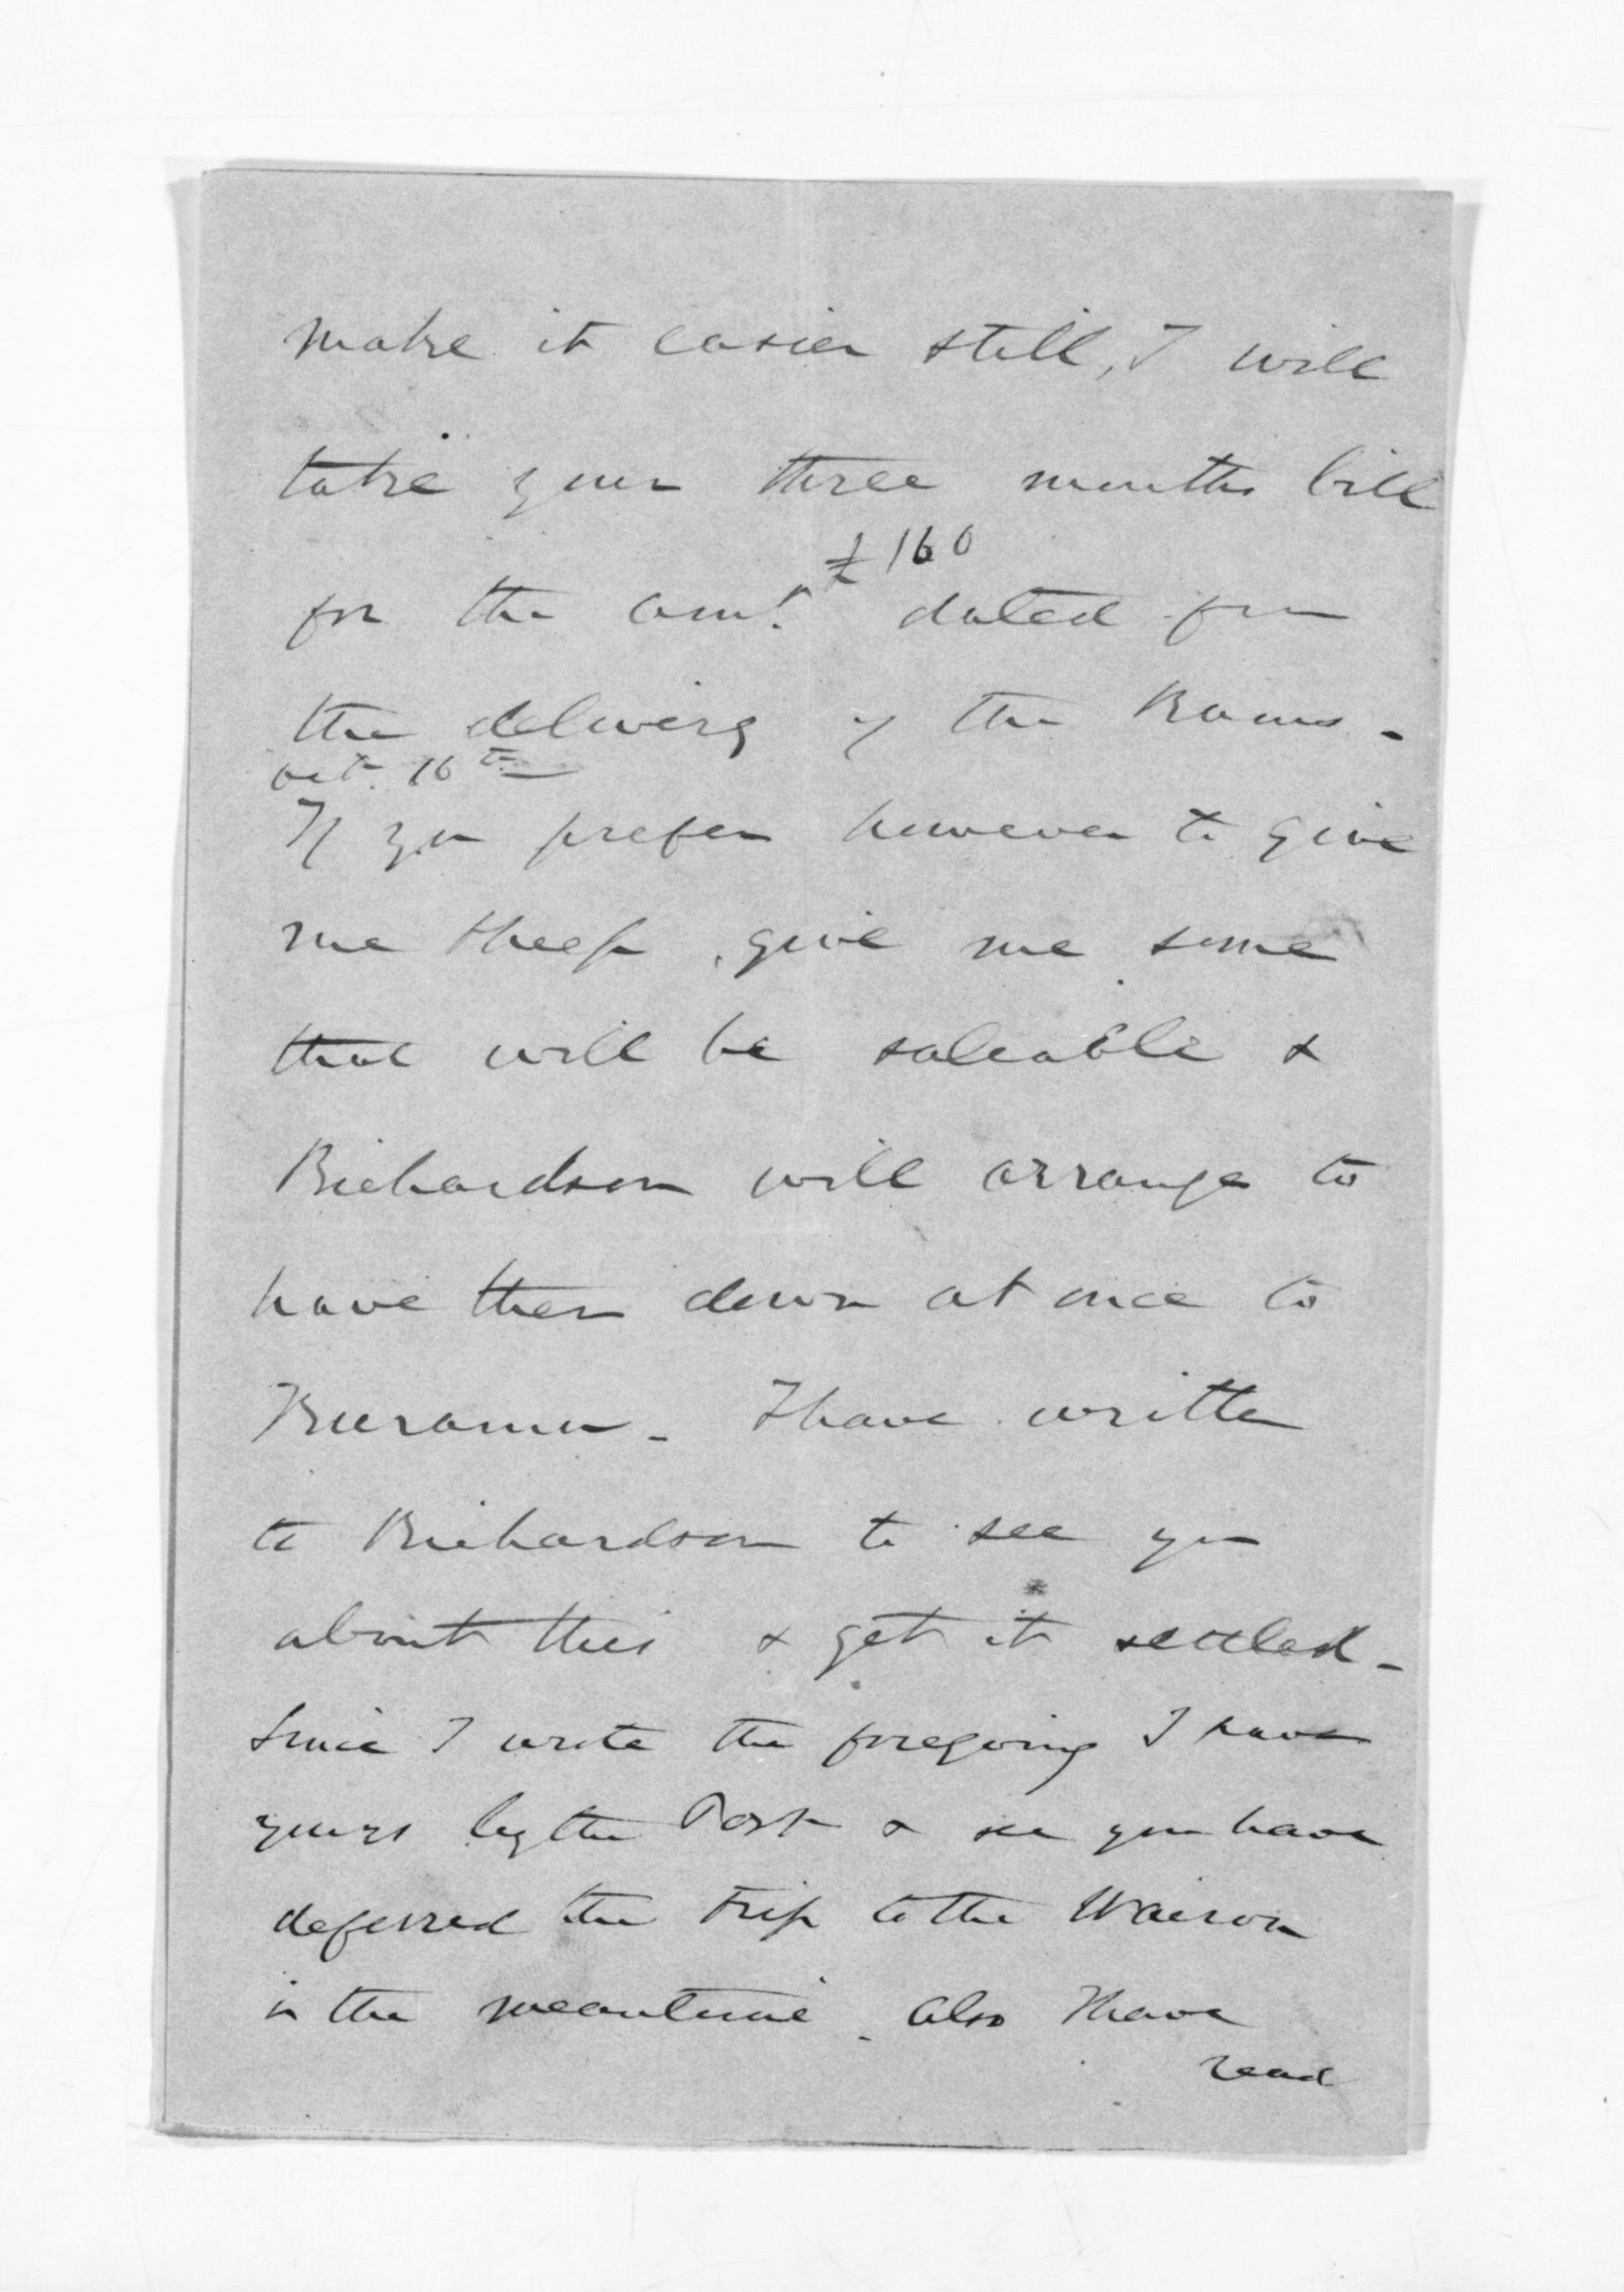 make it easier still, I will
take your three months bill
£160
for the amt. dated from
the delivery of the Rams -
Oct. 16th
If you prefer however to give
me sheep, give me some
that will be saleable &
Richardson will arrange to
have them down at once to
- I have written
to Richardson to see you
about this & get it settled -
Since I wrote the foregoing I have
yours by the Post & see you have
deferred the trip to the Wairoa
in the meantime. Also I have
read